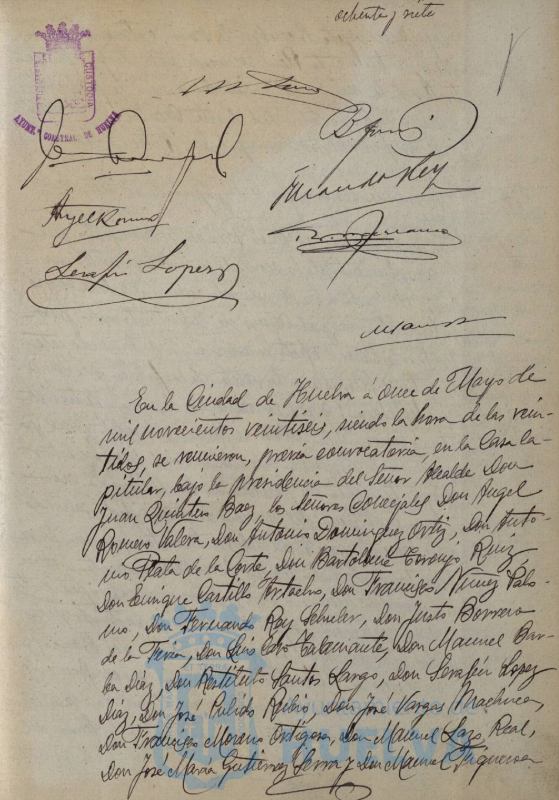 ochenta y siete
CUSTODIA
AYUNT. CONSTNAL. DE HUELVA
Angel Romero
Fernando Rey
Serafin Lopez
En la Ciudad de Huelva á once de Mayo de
mil novecientos veintiseis, siendo la hora de las vein-
tidos, se reunieron, previa convocatoria, en la Casa Ca-
pitular, bajo la presidencia del Señor Alcalde Don
Juan Quintero Baez, los Señores Concejales Don Angel
Romero Valera, Don Antonio Dominguez Ortiz, Don Anto-
nio Plata de la Corte, Don Bartolomé Toronjo Ruiz
Don Enrique Castillo Don Francisco Nuñez Palo-
mo, Don Fernando Rey Don Justo Borrero
de la Feria, Don Luis Calvo Don Manuel Bar-
ba Diaz, Don Restituto Santos Largo, Don Serafin Lopez
Diaz, Don José Pulido Rubio, Don José Vargas Machuca,
Don Francisco Moreno Ortigosa, Don Manuel Lazo Real,
Don José Maria Gutierrez Serra y Don Manuel Figueroa
HUELVA